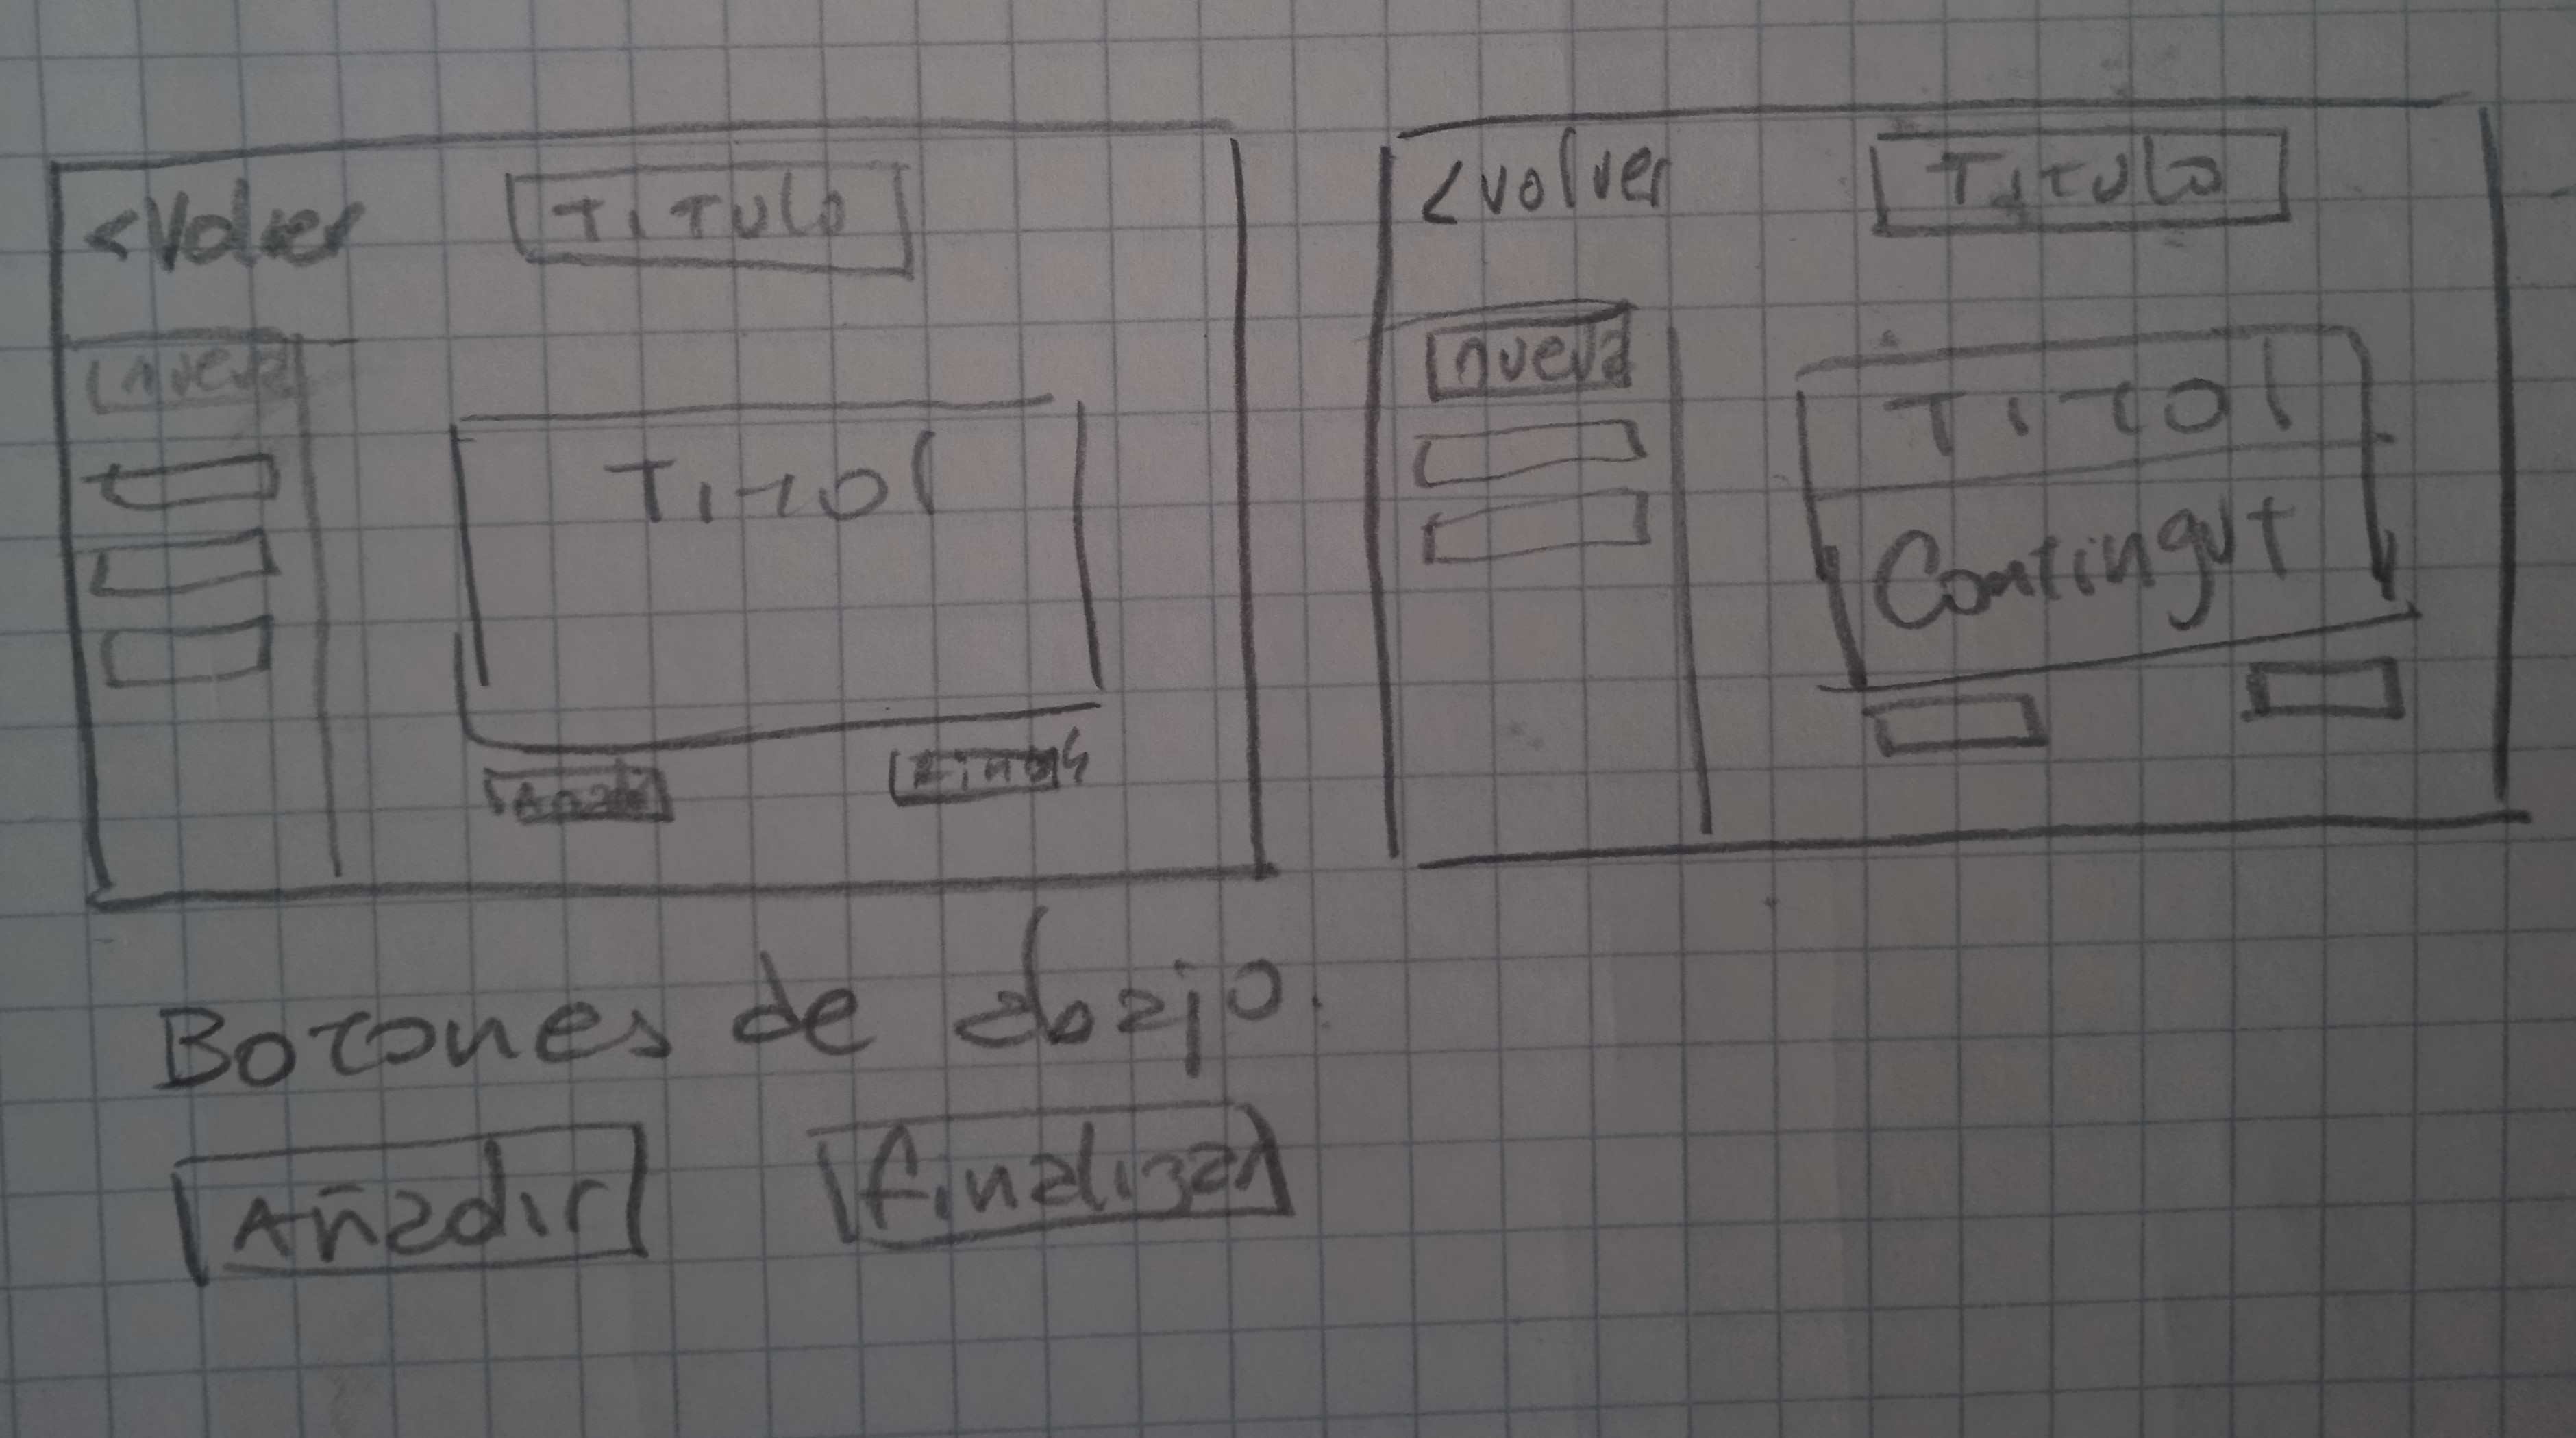 <Volver
TITULO
nueva
TITOl
Añadir
<volver
TITULO
nueva
TITOl
Contingut
Botones de abajo.
Añadir
finalizar